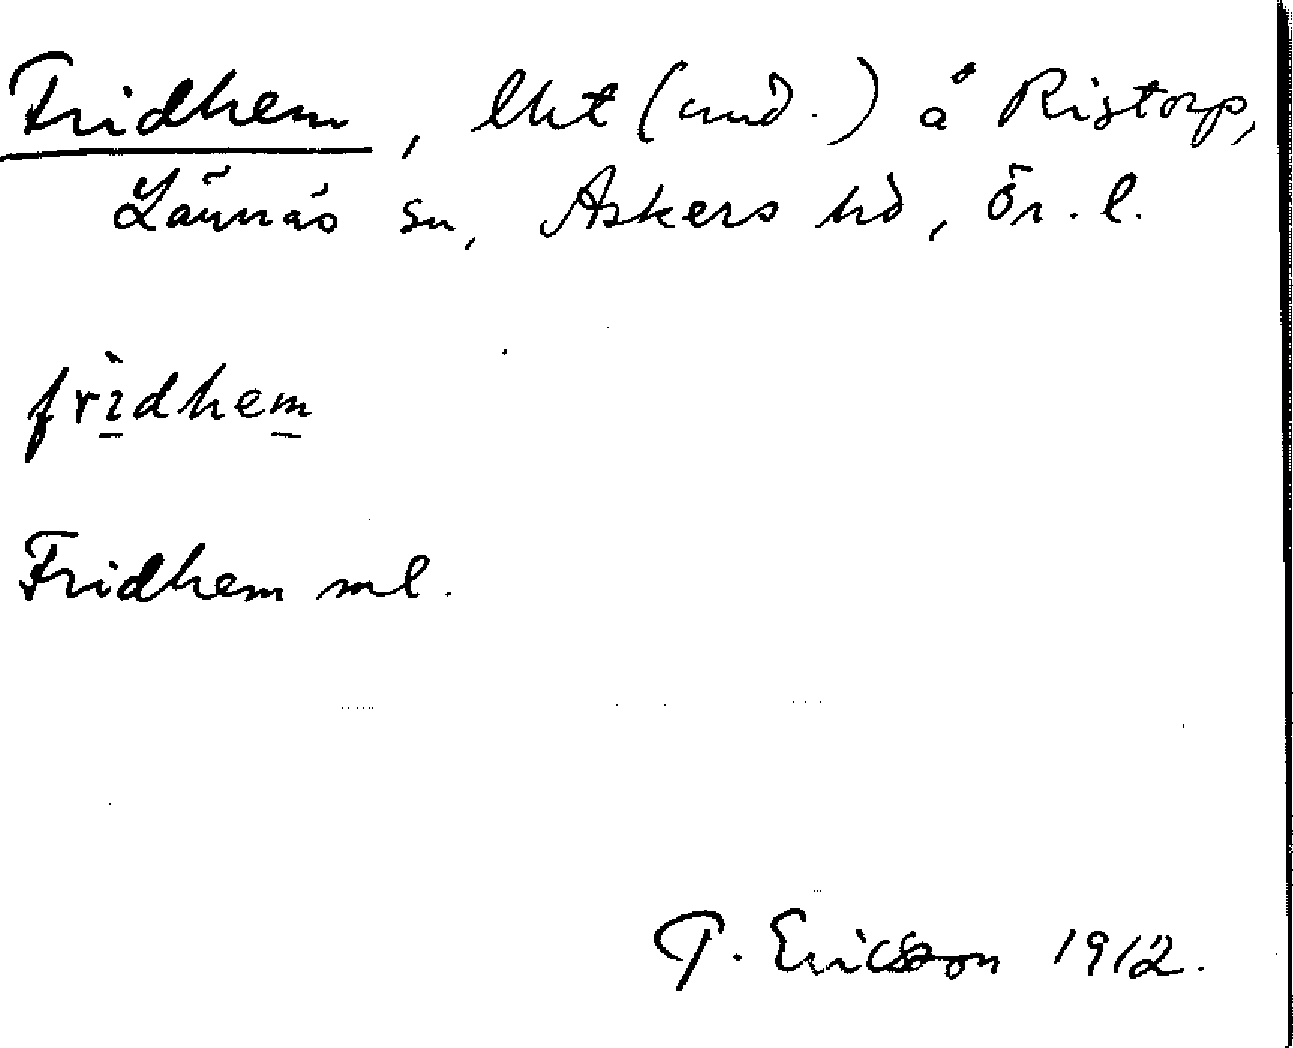 Fridhem, lht (und.) å Ristorp,
Lännäs sn, Askers hd, Ör. l.
fri̱dhem̱
Fridhem ml.
P. Ericsson 1912.